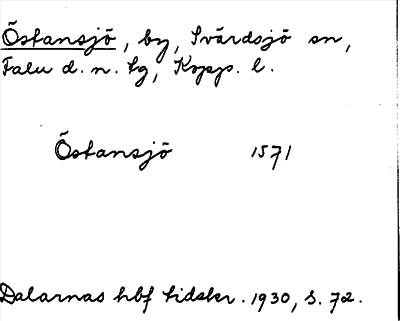 Östansjö, by, Svärdsjö sn,
Falu d. n. tg, Kopp. l.
Östansjö 1571
Dalarnas hbf tidskr. 1930, s. 72.